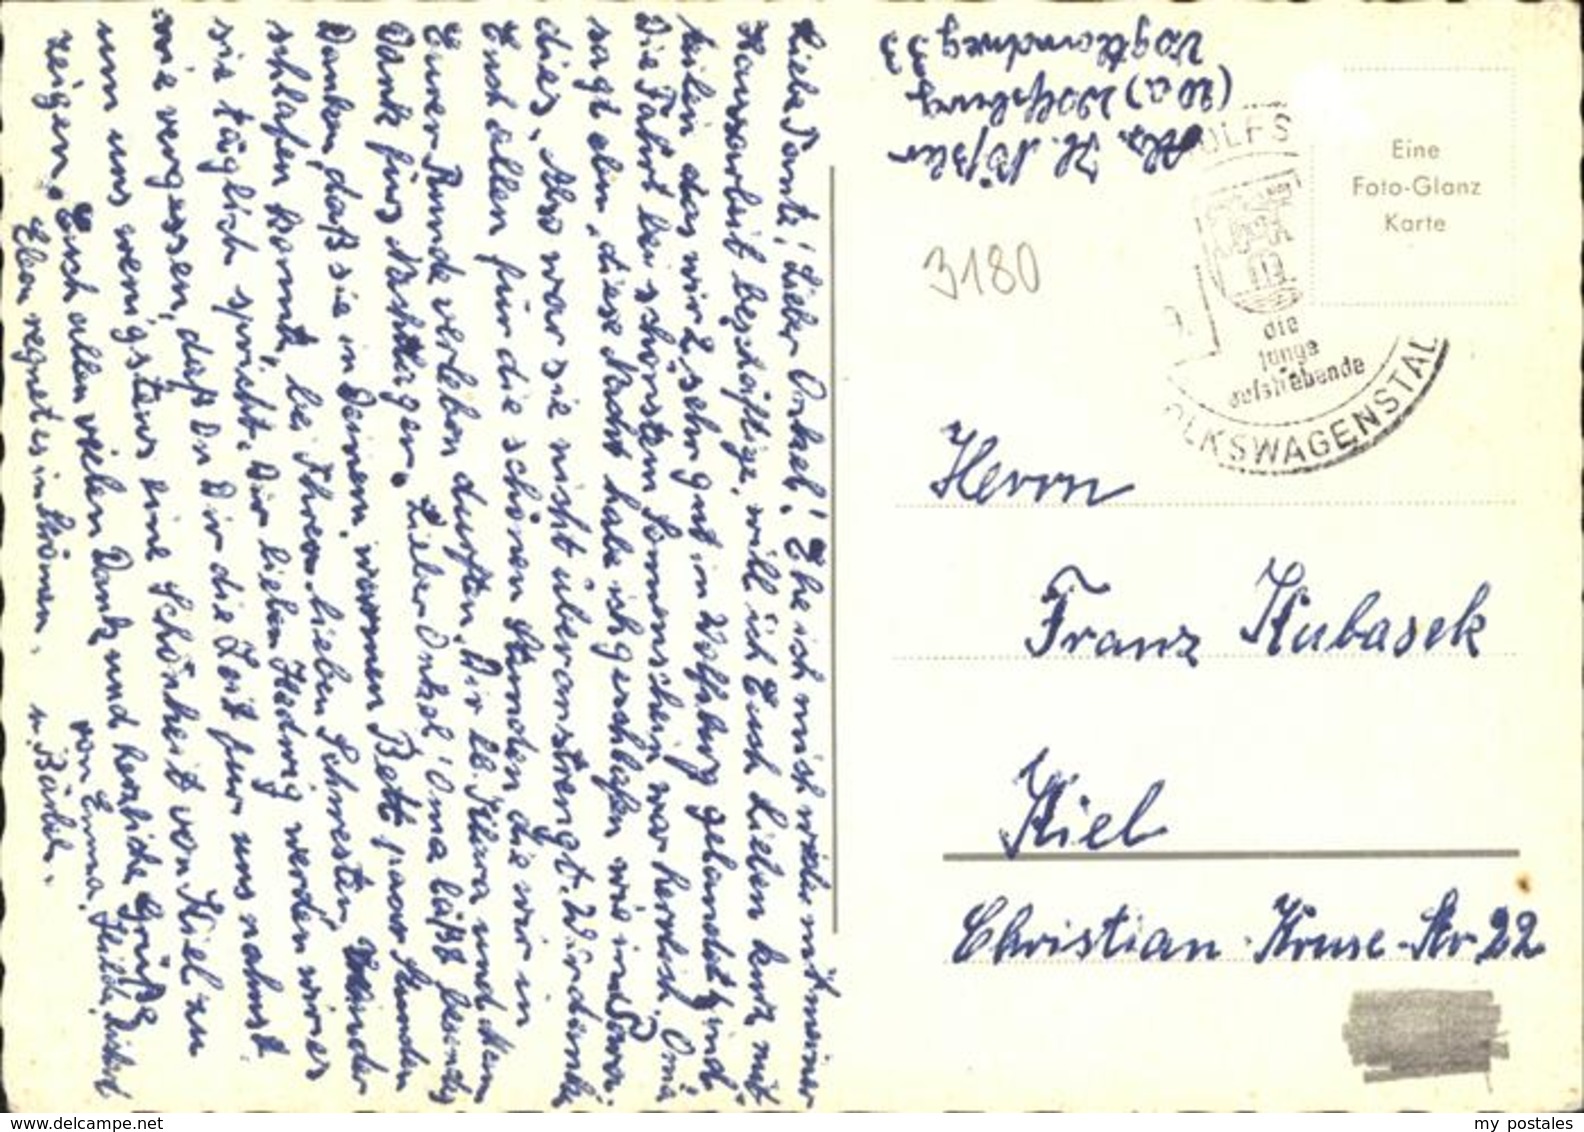 Liebe Tante! Lieber Onkel! Ehe ich mich wieder mit meiner
Hausarbeit beschäftige, will ich Euch Lieben kurz mit
teilen das wir 2 sehr gut in Wolfsburg gelandet sind.
Die Fahrt bei schönstem Sonnenschein war herrlich. Oma
sagt eben, diese Nacht habe ich geschlafen wie im Para
dies. Also war sie nicht überanstrengt. Wir danken
Euch allen für die schönen Stunden die wir in
Eurer Runde verleben durften. Dir lb. Klara und
Dank fürs Nachtlager. Lieber Onkel, Oma läßt
Danken, daß sie in Deinem warmen Bett paar Stunden
schlafen konnte, bei Ihren lieben Schwestern,
sie täglich spricht. Dir lieben Hedwig werden wir es
nie vergessen, daß Du Dir die Zeit für uns nahmst
um uns wenigstens eine Schönheit von Kiel zu
zeigen. Euch allen vielen Dank und herzliche Grüße
Eben regnet es in Strömen.
von Erna, Heide,
u. Bärbel.
Abs. H. Nößler
(20a) Wolfsburg
Vogtlandweg 33
3180
OLFS
die
junge
aufstrebende
OLKSWAGENSTAD
Eine
Foto-Glanz
Karte
Herrn
Franz Kubasek
Kiel
Christian-Kruse-Str 22
www.delcampe.net
my postales